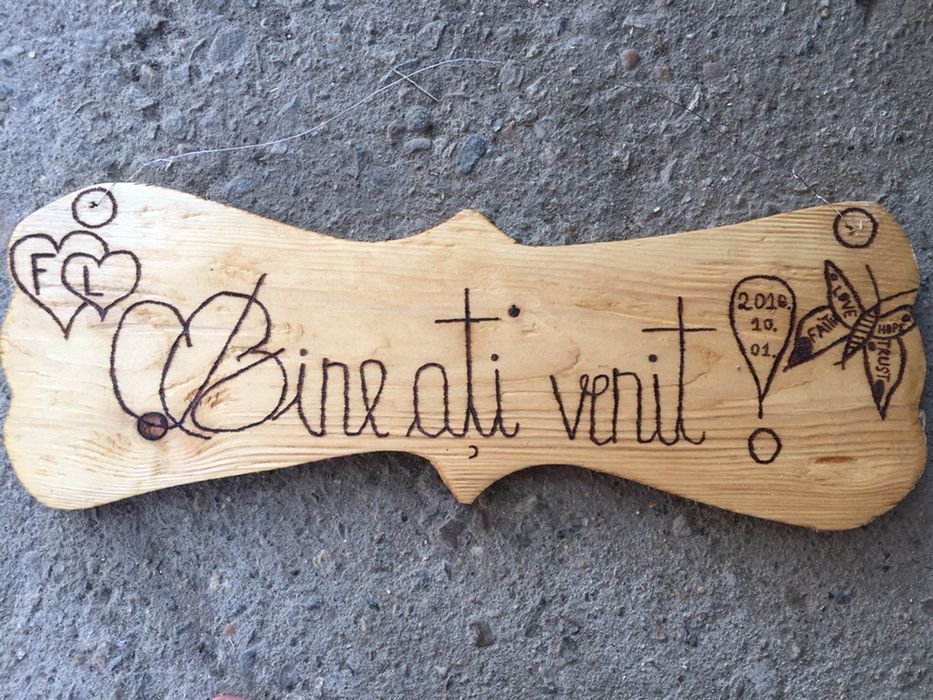 F L
Bine ați venit!
2016.
10.
01.
FAITH
LOVE
HOPE
TRUST